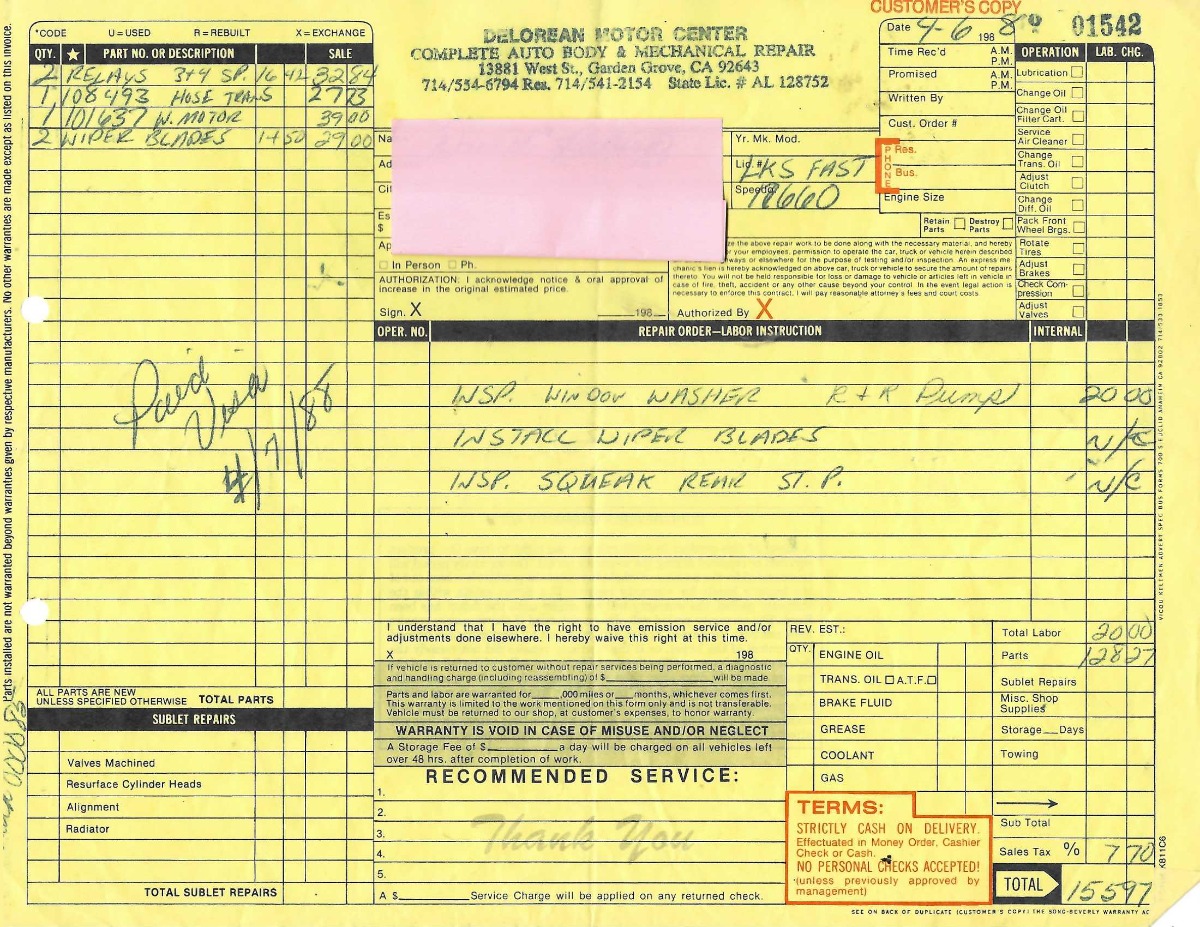 CUSTOMER'S COPY
*CODE U=USED R=REBUILT X=EXCHANGE
QTY. ★ PART NO. OR DESCRIPTION SALE
2 RELAYS 3+4 SP. 16 42 32 84
1 108493 HOSE TRANS 27 73
1 101637 W. MOTOR 39 00
2 WIPER BLADES 14 50 29 00
DELOREAN MOTOR CENTER
COMPLETE AUTO BODY & MECHANICAL REPAIR
13881 West St., Garden Grove, CA 92643
714/554-6794 Res. 714/541-2154 State Lic. # AL 128752
Date 4-6 1988 01542
Time Rec'd A.M. P.M.
Promised A.M. P.M.
Written By
Cust. Order #
PHONE Res.
Bus.
Engine Size
OPERATION LAB. CHG.
Lubrication
Change Oil
Change Oil Filter Cart.
Service Air Cleaner
Change Trans. Oil
Adjust Clutch
Change Diff. Oil
Pack Front Wheel Brgs.
Rotate Tires
Adjust Brakes
Check Compression
Adjust Valves
Na
Ad
Cit
Es
$
Ap
Yr. Mk. Mod.
Lic. # LKS FAST
Speedo.
Retain Parts Destroy Parts
In Person Ph.
AUTHORIZATION: I acknowledge notice & oral approval of
increase in the original estimated price.
Sign. X 198
ze the above repair work to be done along with the necessary material, and hereby
your employees, permission to operate the car, truck or vehicle herein described
ways or elsewhere for the purpose of testing and/or inspection. An express me
chanic's lien is hereby acknowledged on above car, truck or vehicle to secure the amount of repairs
thereto. You will not be held responsible for loss or damage to vehicle or articles left in vehicle in
case of fire, theft, accident or any other cause beyond your control. In the event legal action is
necessary to enforce this contract, I will pay reasonable attorney's fees and court costs
Authorized By X
OPER. NO. REPAIR ORDER—LABOR INSTRUCTION INTERNAL
INSP. WINDOW WASHER R+R Pump 20 00
INSTALL WIPER BLADES N/C
INSP. SQUEAK REAR ST. P. N/C
Paid
Visa
4/7/88
Parts installed are not warranted beyond warranties given by respective manufacturers. No other warranties are made except as listed on this invoice.
ALL PARTS ARE NEW
UNLESS SPECIFIED OTHERWISE TOTAL PARTS
SUBLET REPAIRS
Valves Machined
Resurface Cylinder Heads
Alignment
Radiator
TOTAL SUBLET REPAIRS
I understand that I have the right to have emission service and/or
adjustments done elsewhere. I hereby waive this right at this time.
X 198
If vehicle is returned to customer without repair services being performed, a diagnostic
and handling charge (including reassembling) of $ will be made
Parts and labor are warranted for ,000 miles or months, whichever comes first.
This warranty is limited to the work mentioned on this form only and is not transferable.
Vehicle must be returned to our shop, at customer's expenses, to honor warranty.
WARRANTY IS VOID IN CASE OF MISUSE AND/OR NEGLECT
A Storage Fee of $ a day will be charged on all vehicles left
over 48 hrs. after completion of work.
RECOMMENDED SERVICE:
1.
2.
3.
4.
5.
Thank You
A $ Service Charge will be applied on any returned check.
REV. EST.:
QTY.
ENGINE OIL
TRANS. OIL A.T.F.
BRAKE FLUID
GREASE
COOLANT
GAS
TERMS:
STRICTLY CASH ON DELIVERY.
Effectuated in Money Order, Cashier
Check or Cash.
NO PERSONAL CHECKS ACCEPTED!
(unless previously approved by
management)
Total Labor 20 00
Parts 128 27
Sublet Repairs
Misc. Shop Supplies
Storage Days
Towing
Sub Total
Sales Tax % 7 70
TOTAL 155 97
KB11C6
SEE ON BACK OF DUPLICATE (CUSTOMER'S COPY) THE SONG-BEVERLY WARRANTY AC